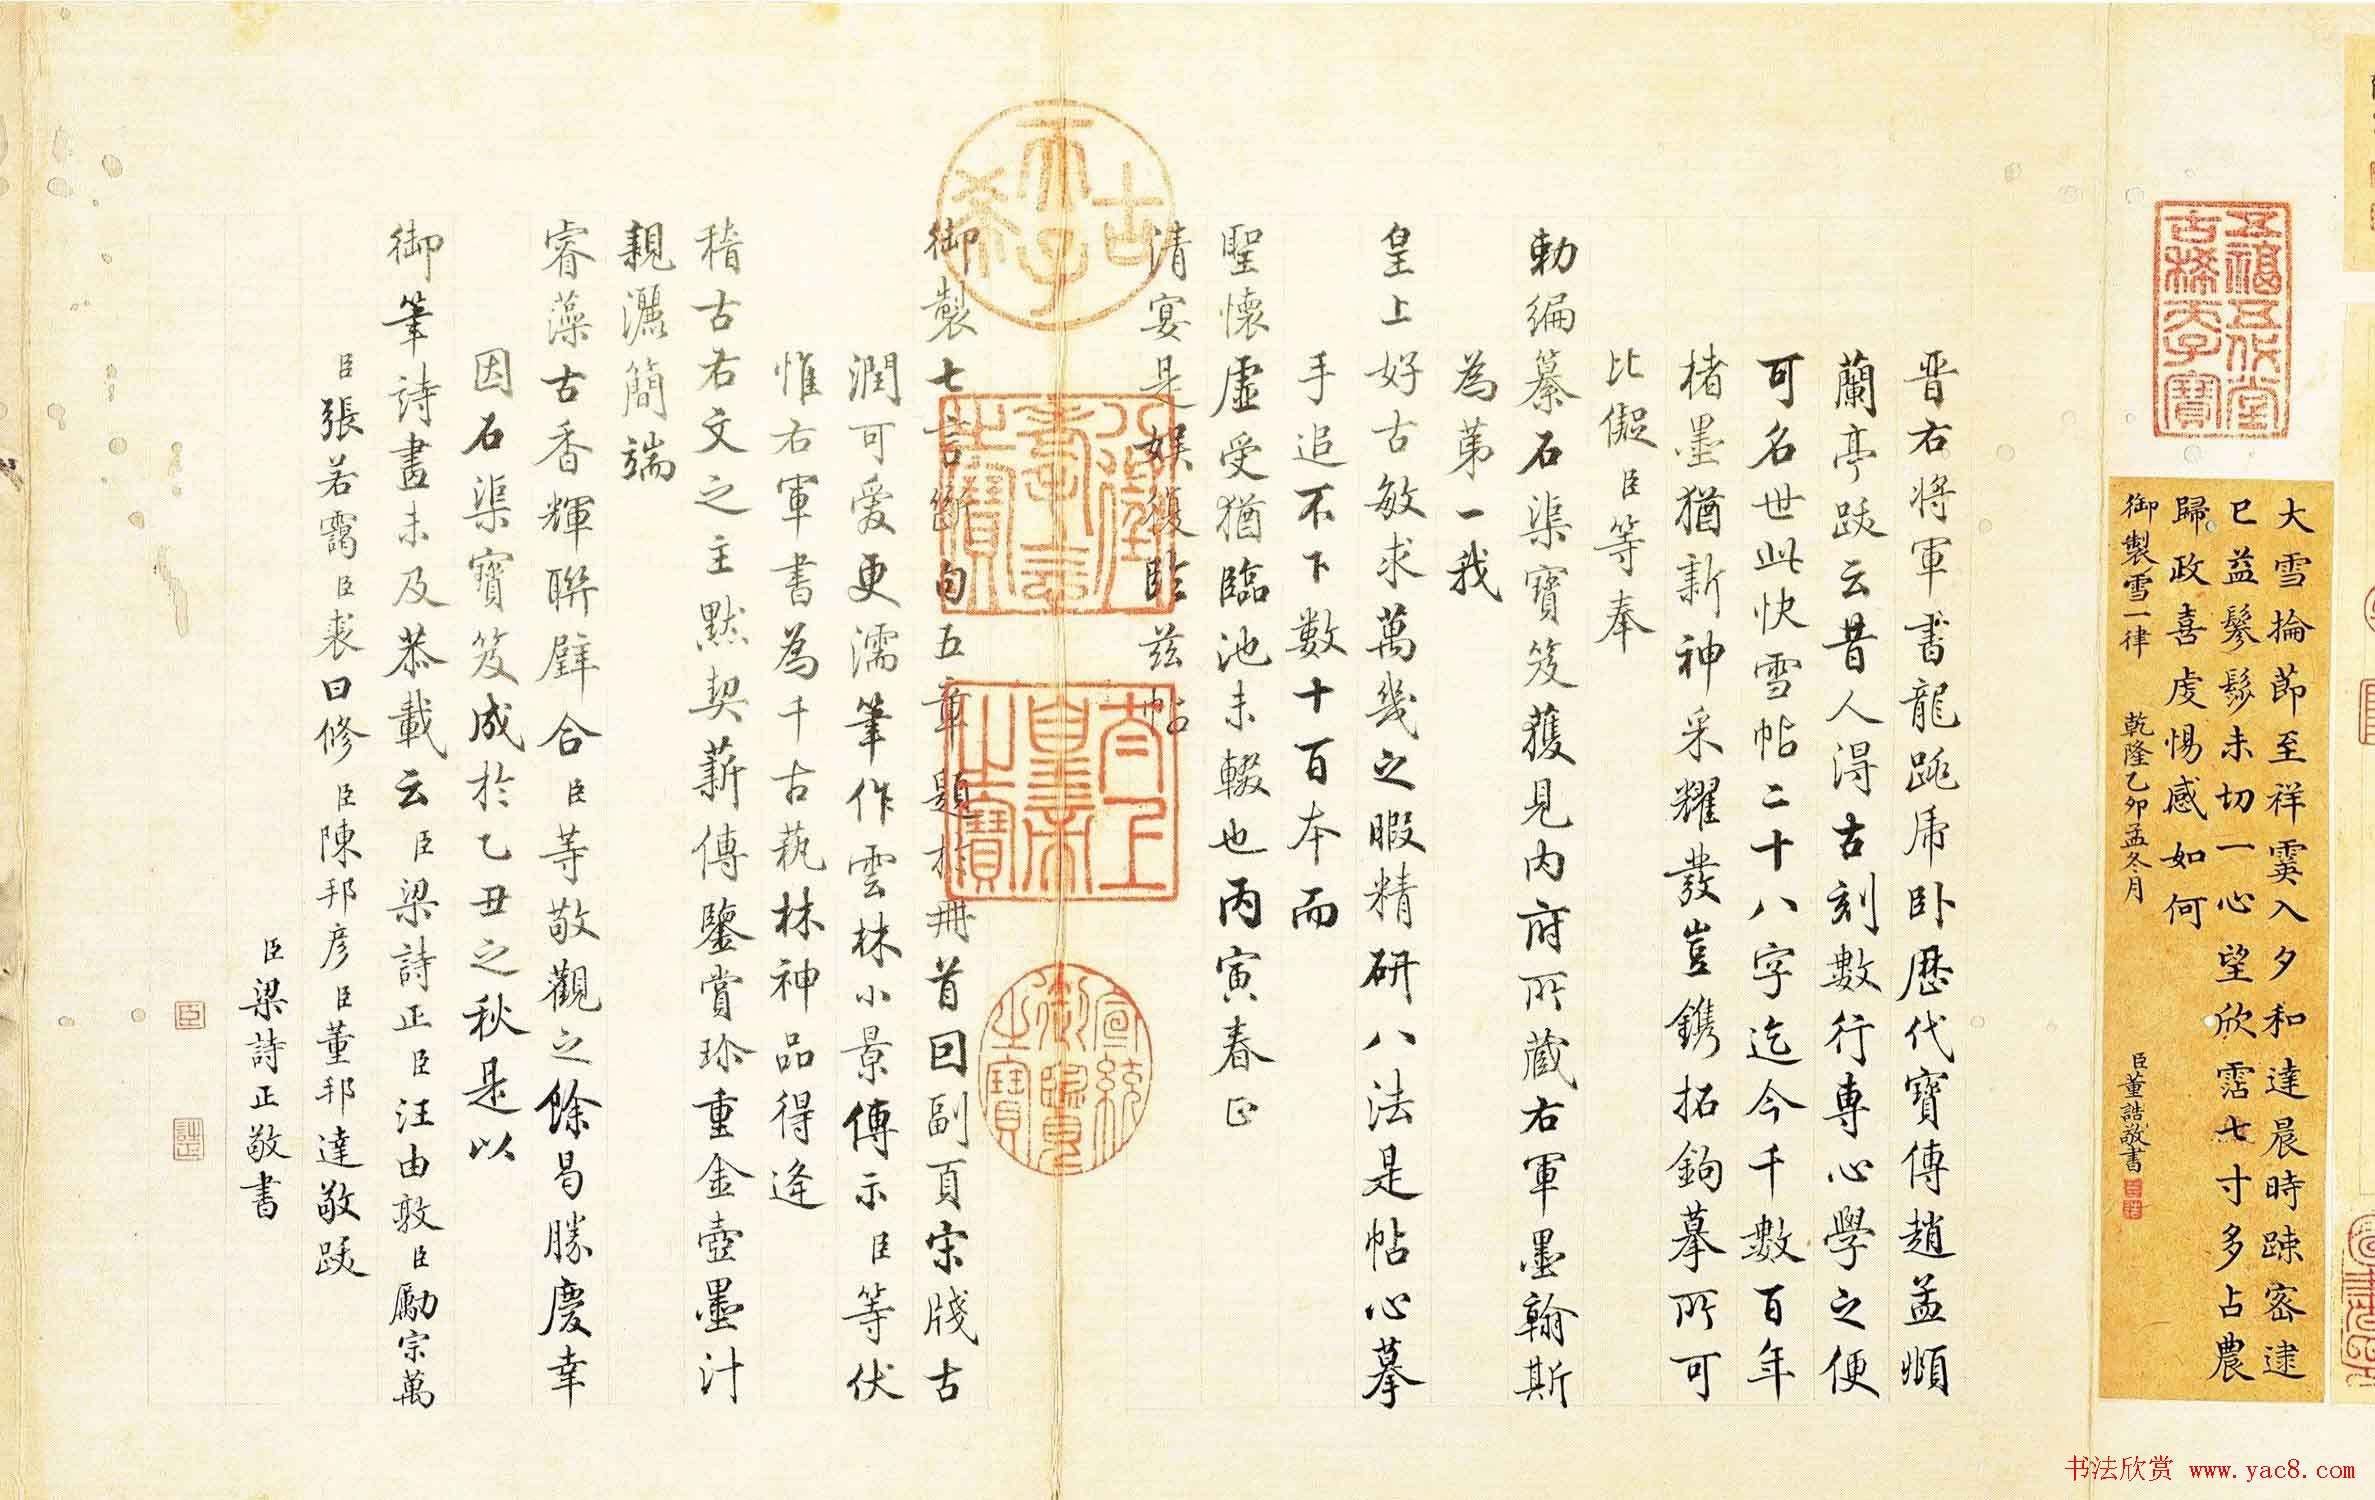 大雪掄節至祥霙入夕和達晨時踈密逮
巳益鬖髿未切一心望欣霑七寸多占農
歸政喜虔惕感如何
御製雪一律　乾隆乙卯孟冬月
臣董誥敬書
五福五代堂
古稀天子寶
晋右将軍書龍跳乕卧歷代寶傳趙孟頫
蘭亭跋云昔人得古刻數行專心學之便
可名世此快雪帖二十八字迄今千數百年
楮墨猶新神采耀發豈鐫拓鉤摹所可
比儗臣等奉
勅編纂石渠寶笈獲見內府所藏右軍墨翰斯
為第一我
皇上好古敏求萬幾之暇精研八法是帖心摹
手追不下數十百本而
聖懷虛受猶臨池未輟也丙寅春正
清宴是娱復臨茲帖
御製七言斷句五章題於冊首回副頁宋牋古
潤可愛更濡筆作雲林小景傳示臣等伏
惟右軍書為千古蓺林神品得逢
稽古右文之主默契薪傳鑒賞珍重金壺墨汁
親灑簡端
睿藻古香輝聯璧合臣等敬觀之餘曷勝慶幸
因石渠寶笈成於乙丑之秋是以
御筆詩畫未及恭載云臣梁詩正臣汪由敦臣勵宗萬
臣張若靄臣裘曰修臣陳邦彦臣董邦達敬跋
臣梁詩正敬書
古希天子
八徵耄念之寶
太上皇帝之寶
宣統御覽之寶
臣
书法欣赏 www.yac8.com